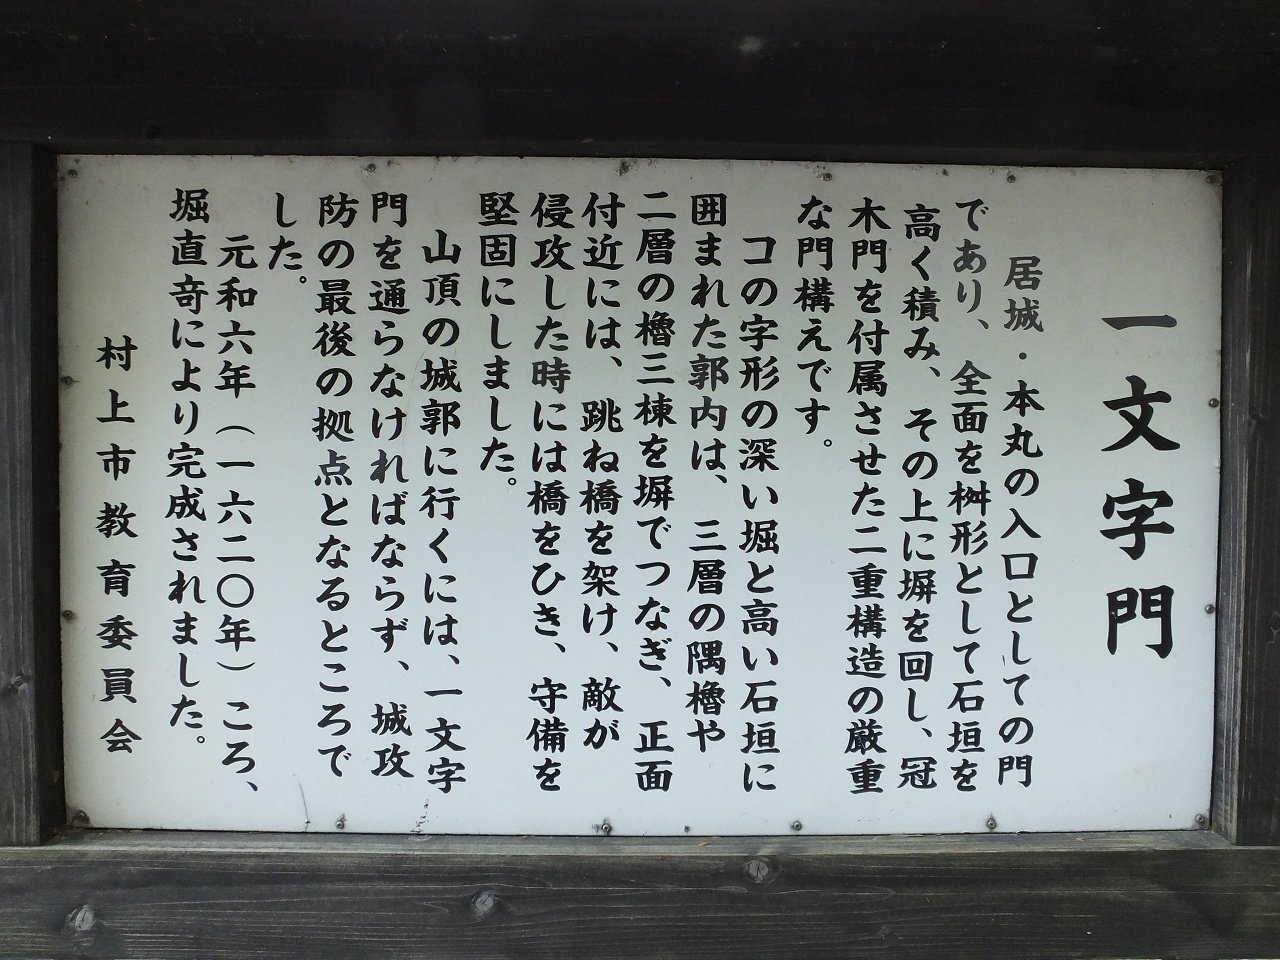 一文字門
居城・本丸の入口としての門
であり、全面を桝形として石垣を
高く積み、その上に塀を回し、冠
木門を付属させた二重構造の厳重
な門構えです。
コの字形の深い堀と高い石垣に
囲まれた郭内は、三層の隅櫓や
二層の櫓三棟を塀でつなぎ、正面
付近には、跳ね橋を架け、敵が
侵攻した時には橋をひき、守備を
堅固にしました。
山頂の城郭に行くには、一文字
門を通らなければならず、城攻
防の最後の拠点となるところで
した。
元和六年（一六二〇年）ころ、
堀直竒により完成されました。
村上市教育委員会